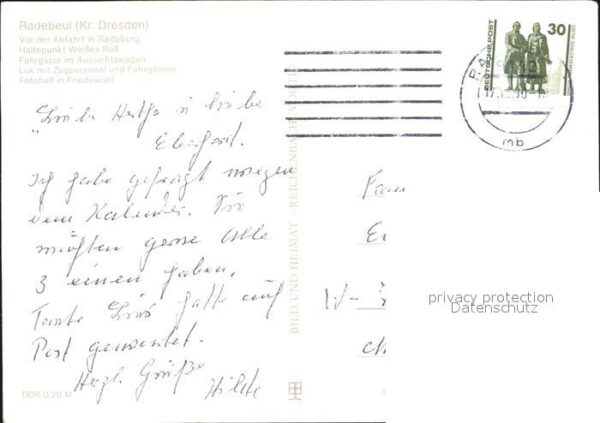 Radebeul (Kr. Dresden)
Vor der Abfahrt in Radeburg
Haltepunkt Weißes Roß
Fahrgäste im Aussichtswagen
Lok mit Zugpersonal und Fahrgästen
Fotohalt in Friedewald
Liebe u. Liebe
Eberhard.
Ich habe gefragt wegen
dem Kalender. Sie
möchten gerne alle
3 einen haben.
Tante hatte auf
Post gewartet.
Herzl. Grüße
Hilde
DDR 0,20 M
BILD UND HEIMAT · REICHENBACH
DEUTSCHE POST
30
mb
Fam
W-
privacy protection
Datenschutz